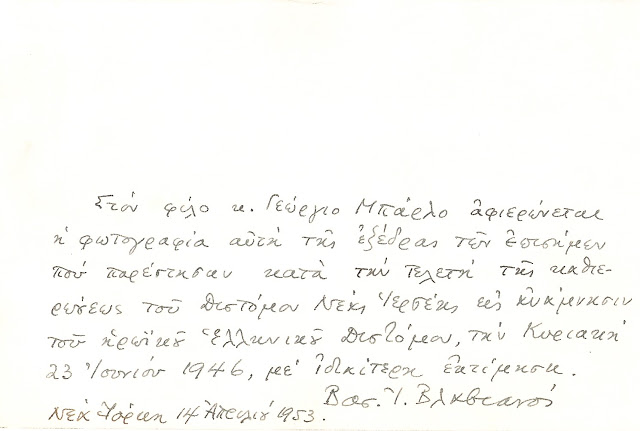 Στόν φίλο κ. Γεώργιο Μπάρλο ἀφιερώνεται
ἡ φωτογραφία αὐτή τῆς ἐξέδρας τῶν ἐπισήμων
πού παρέστησαν κατά τήν τελετή τῆς καθιε-
ρώσεως τοῦ Διστόμου Νέας Ἰερσέης εἰς ἀνάμνησιν
τοῦ ἡρωϊκοῦ Ἑλληνικοῦ Διστόμου, τήν Κυριακή
23 Ἰουνίου 1946, μέ ἰδιαίτερη ἐκτίμηση.
Βασ. Ἰ. Βλαβιανός
Νέα Ὑόρκη 14 Ἀπριλίου 1953.